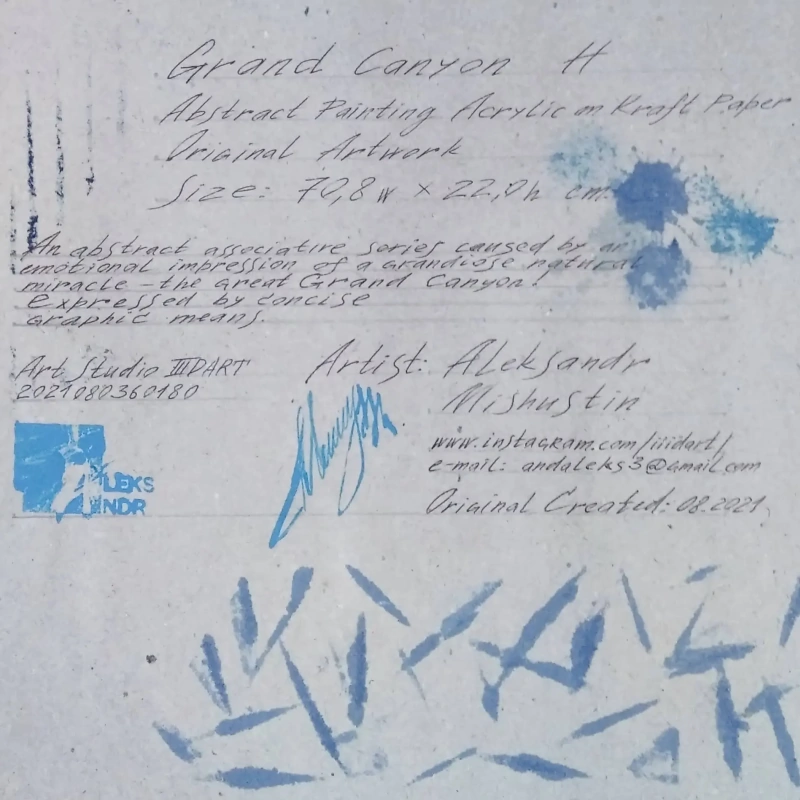 Grand Canyon H
Abstract Painting Acrylic on Kraft Paper
Original Artwork
Size: 70,8w × 22,0h cm.
An abstract associative series caused by an
emotional impression of a grandiose natural
miracle – the great Grand Canyon!
Expressed by concise
graphic means.
Art Studio IIIDART
2021080360180
Artist: Aleksandr
Mishustin
www.instagram.com/iiidart/
e-mail: andaleks3@gmail.com
Original Created: 08.2021.
ALEKS
NDR